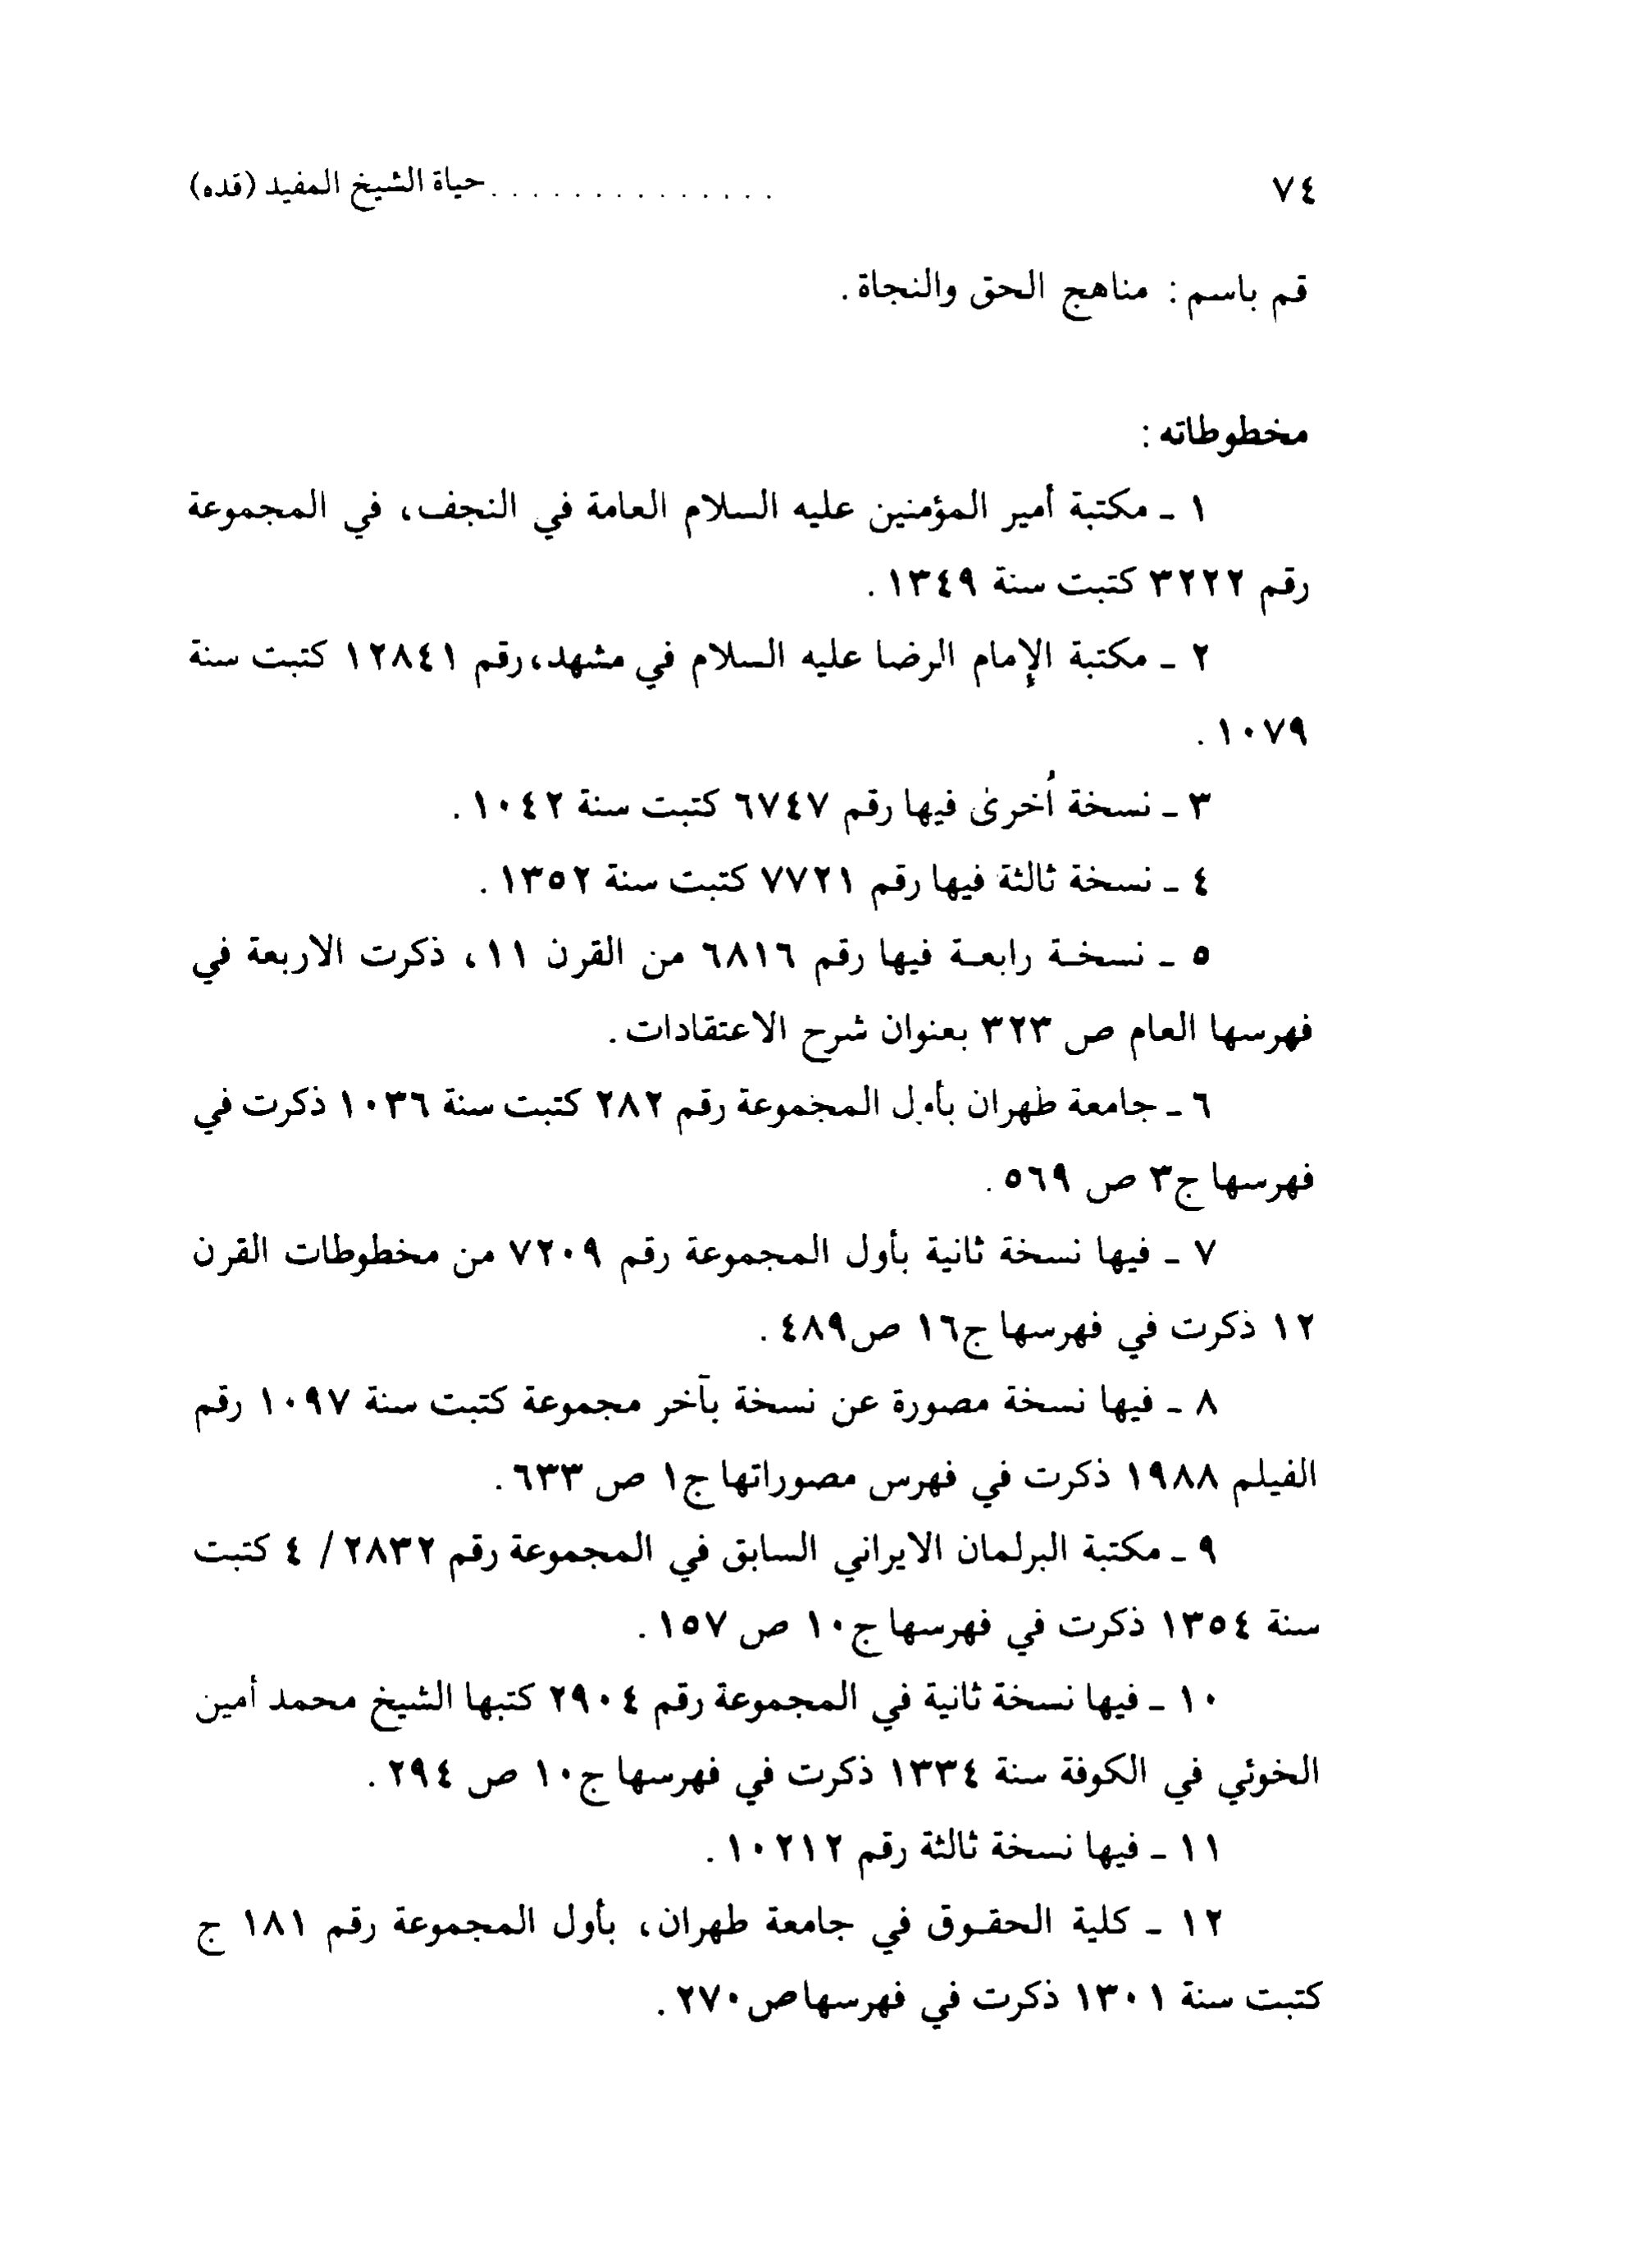 ٧٤ .............. حياة الشيخ المفيد (قده)
قم باسم : مناهج الحق والنجاة .
مخطوطاته :
١ ـ مكتبة أمير المؤمنين عليه السلام العامة في النجف، في المجموعة
رقم ٣٢٢٢ كتبت سنة ١٣٤٩ .
٢ ـ مكتبة الإمام الرضا عليه السلام في مشهد، رقم ١٢٨٤١ كتبت سنة
١٠٧٩ .
٣ ـ نسخة اُخرىٰ فيها رقم ٦٧٤٧ كتبت سنة ١٠٤٢ .
٤ ـ نسخة ثالثة فيها رقم ٧٧٢١ كتبت سنة ١٣٥٢ .
٥ ـ نسخـة رابعـة فيها رقم ٦٨١٦ من القرن ١١، ذكرت الاربعة في
فهرسها العام ص ٣٢٣ بعنوان شرح الاعتقادات .
٦ ـ جامعة طهران بأول المجموعة رقم ٢٨٢ كتبت سنة ١٠٣٦ ذكرت في
فهرسها ج٣ ص ٥٦٩ .
٧ ـ فيها نسخة ثانية بأول المجموعة رقم ٧٢٠٩ من مخطوطات القرن
١٢ ذكرت في فهرسها ج١٦ ص٤٨٩ .
٨ ـ فيها نسخة مصورة عن نسخة بآخر مجموعة كتبت سنة ١٠٩٧ رقم
الفيلم ١٩٨٨ ذكرت في فهرس مصوراتها ج١ ص ٦٣٣ .
٩ ـ مكتبة البرلمان الايراني السابق في المجموعة رقم ٢٨٣٢ / ٤ كتبت
سنة ١٣٥٤ ذكرت في فهرسها ج١٠ ص ١٥٧ .
١٠ ـ فيها نسخة ثانية في المجموعة رقم ٢٩٠٤ كتبها الشيخ محمد أمين
الخوئي في الكوفة سنة ١٣٣٤ ذكرت في فهرسها ج١٠ ص ٢٩٤ .
١١ ـ فيها نسخة ثالثة رقم ١٠٢١٢ .
١٢ ـ كلية الحقـوق في جامعة طهران، بأول المجموعة رقم ١٨١ ج
كتبت سنة ١٣٠١ ذكرت في فهرسها ص٢٧٠ .